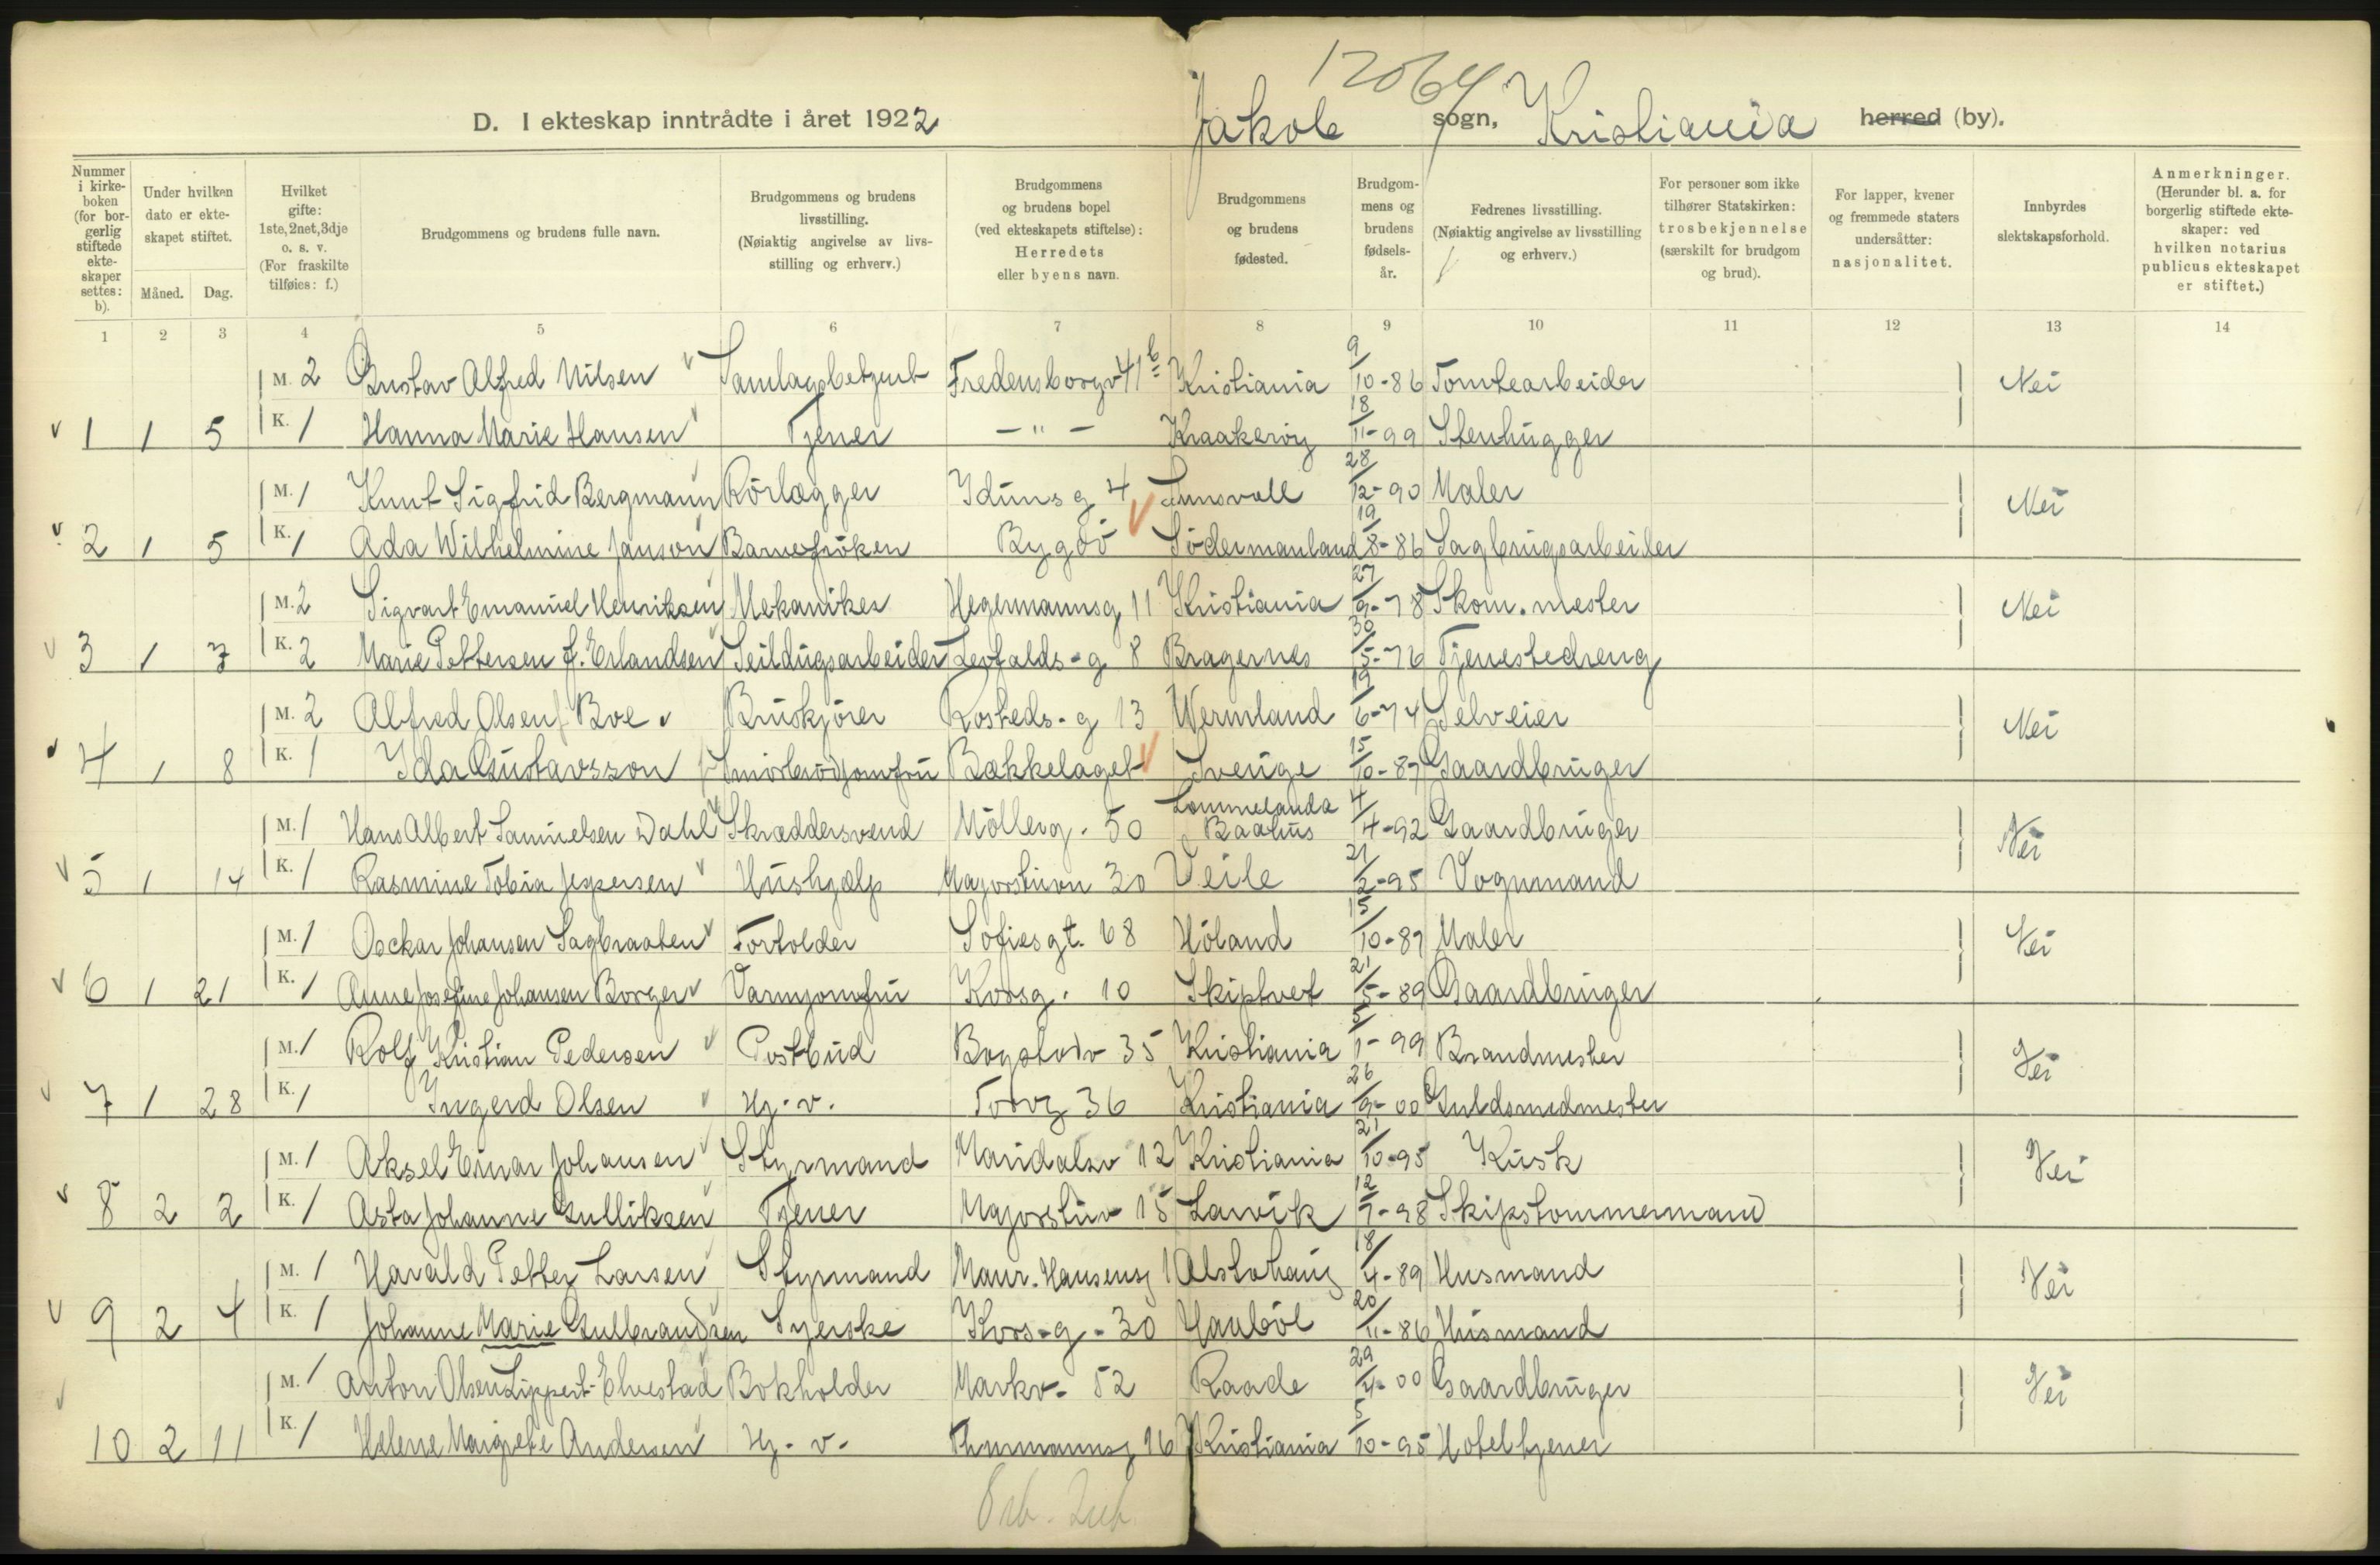 12064
D. I ekteskap inntrådte i året 1922 Jakob sogn, Kristiania herred (by).
Nummer i kirkeboken (for borgerlig stiftede ekteskaper settes: b).
Under hvilken dato er ekteskapet stiftet.
Måned. Dag.
Hvilket gifte: 1ste, 2net, 3dje o. s. v. (For fraskilte tilføies: f.)
Brudgommens og brudens fulle navn.
Brudgommens og brudens livsstilling. (Nøiaktig angivelse av livsstilling og erhverv.)
Brudgommens og brudens bopel (ved ekteskapets stiftelse): Herredets eller byens navn.
Brudgommens og brudens fødested.
Brudgommens og brudens fødselsår.
Fedrenes livsstilling. (Nøiaktig angivelse av livsstilling og erhverv.)
For personer som ikke tilhører Statskirken: trosbekjennelse (særskilt for brudgom og brud).
For lapper, kvener og fremmede staters undersåtter: nasjonalitet.
Innbyrdes slektskapsforhold.
Anmerkninger. (Herunder bl. a. for borgerlig stiftede ekteskaper: ved hvilken notarius publicus ekteskapet er stiftet.)
1 2 3 4 5 6 7 8 9 10 11 12 13 14
M. 2 Gustav Alfred Nilsen Samlagsbetjent Fredensborgv 41b Kristiania 9/10-86 Tomtearbeider Nei
1 1 5 K. 1 Hanna Marie Hansen Tjener — " — Kraakerøy 18/11-99 Stenhugger
M. 1 Knut Sigfrid Bergmann Rörlægger Iduns g 4 Sunsvall 28/12-90 Maler Nei
2 1 5 K. 1 Ada Wilhelmine Janson Barnefröken Bygdö Södermanland 19/8-86 Sagbrugsarbeider
M. 2 Sigvart Emanuel Henriksen Mekaniker Hegermannsg 11 Kristiania 27/9-78 Skom. mester Nei
3 1 7 K. 2 Marie Pettersen f. Erlandsen Seildugsarbeider Leofalds-g 8 Bragernes 30/5-76 Tjenestedreng
M. 2 Alfred Olsen Boe Bruskjörer Rosteds-g 13 Wermland 19/6-74 Selveier Nei
4 1 8 K. 1 Ida Gustavsson Smörbrödjomfru Bækkelaget Sverige 15/10-87 Gaardbruger
M. 1 Hans Albert Samuelsen Dahl Skræddersvend Möllerg. 50 Lommelanda Baahus 4/4-92 Gaardbruger Nei
5 1 14 K. 1 Rasmine Tobia Jespersen Hushjælp Majorstuvn 30 Veile 21/2-95 Vognmand
M. 1 Osckar Johansen Sagbraaten Fortolder Sofiesgt. 68 Höland 15/10-87 Maler Nei
6 1 21 K. 1 Anne Josefine Johansen Borger Varmjomfru Korsg. 10 Skiptvet 21/5-89 Gaardbruger
M. 1 Rolf Kristian Pedersen Postbud Bogstadv 35 Kristiania 5/1-99 Brandmester Nei
7 1 28 K. 1 Ingerd Olsen Hj. v. Torvg 36 Kristiania 26/9-00 Guldsmedmester
M. 1 Aksel Einar Johansen Styrmand Maridalsv 12 Kristiania 21/10-95 Kusk Nei
8 2 2 K. 1 Asta Johanne Gulliksen Tjener Majorstuv 15 Larvik 12/7-98 Skipstømmermand
M. 1 Harald Petter Larsen Styrmand Maur. Hansensg 1 Alstahaug 18/4-89 Husmand Nei
9 2 4 K. 1 Johanne Marie Gulbrandsen Syerske Kors-g-30 Haabøl 20/11-86 Husmand
M. 1 Anton Olsen Lippert-Elvestad Bokholder Markv. 52 Raade 29/4-00 Gaardbruger Nei
10 2 11 K. 1 Helene Margrete Andersen Hj. v. Thurmannsg 16 Kristiania 5/10-95 Hoteltjener